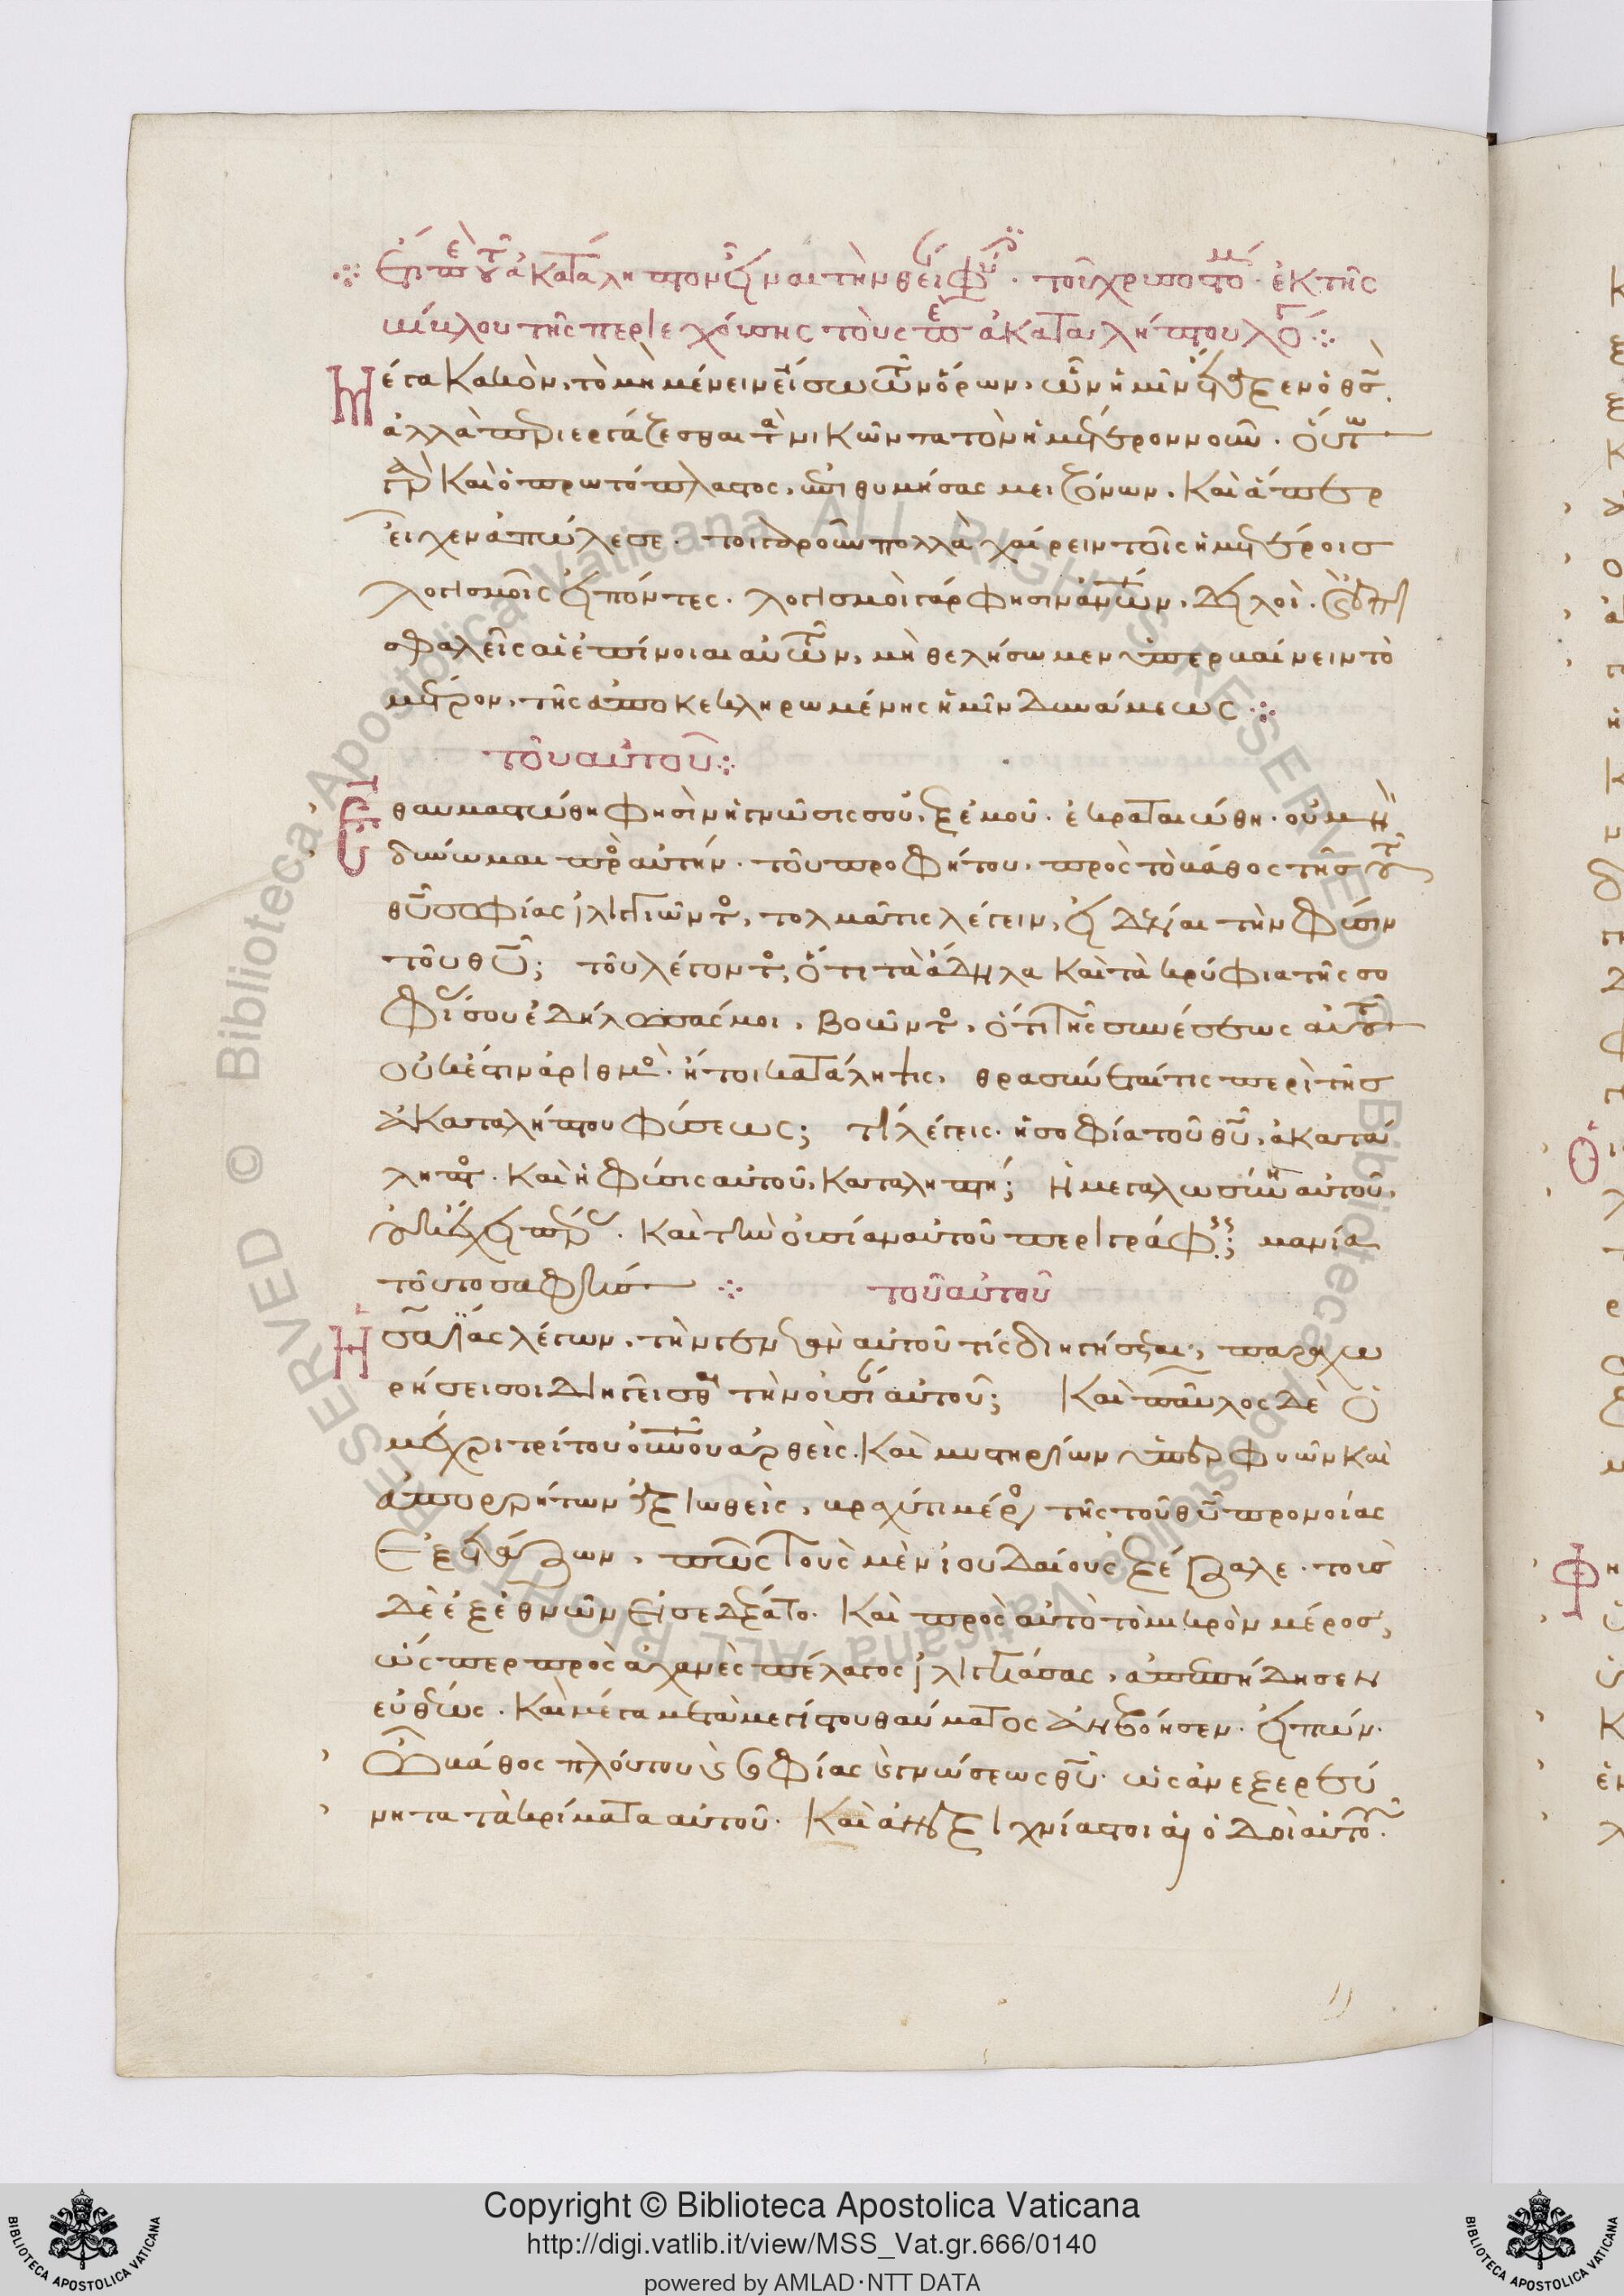 Ἔτι περὶ τοῦ ἀκατάληπτον εἶναι τὴν θείαν φύσιν. τοῦ χρυσοστόμου. ἐκ τῆς
βίβλου τῆς περιεχούσης τοὺς περὶ ἀκαταλήπτου λόγους
Μέγα κακὸν, τὸ μὴ μένειν εἴσω τῶν ὅρων, ὧν ἡμῖν ἔταξεν ὁ θς.
ἀλλὰ περιεργάζεσθαι τὰ νικῶντα τὸν ἡμέτερον νοῦν. οὕτω
γὰρ καὶ ὁ πρωτόπλαστος, ἐπιθυμήσας μειζόνων. καὶ ἅπερ
εἶχεν ἀπώλεσε. τοιγαροῦν πολλὰ χαίρειν τοῖς ἡμετέροις
λογισμοῖς εἰπόντες. λογισμοὶ γάρ φησιν ἀνων, δειλοὶ. καὶ ἐπι
σφαλεῖς αἱ ἐπίνοιαι αὐτῶν, μὴ θελήσωμεν ὑπερβαίνειν τὸ
μέτρον, τῆς ἀποκεκληρωμένης ἡμῖν δυνάμεως
τοῦ αὐτοῦ
Ἐθαυμαστώθη φησὶν ἡ γνῶσις σου, ἐξ ἐμοῦ. ἐκραταιώθη. οὐ μὴ
δύνωμαι πρὸς αὐτήν. τοῦ προφήτου, πρὸς τὸ βάθος τῆς τοῦ
θυ σοφίας ἰλιγγιῶντος, τολμᾶ τις λέγειν, εἰδέναι τὴν φύσιν
τοῦ θυ; τοῦ λέγοντος, ὅτι τὰ ἄδηλα καὶ τὰ κρύφια τῆς σο
φίας σου ἐδήλωσάς μοι. βοῶντος, ὅτι τῆς συνέσεως αὐτοῦ
οὐκ ἔστιν ἀριθμὸς. ἤτοι κατάληψις, θρασύνεταί τις περὶ τῆς
ἀκαταλήπτου φύσεως; τί λέγεις. ἡ σοφία τοῦ θυ, ἀκατά
ληπτος. καὶ ἡ φύσις αὐτοῦ, καταληπτή; ἡ μεγαλωσύνη αὐτοῦ,
οὐκ ἔχει πέρας. καὶ τὴν οὐσίαν αὐτοῦ περιγράφεις; μανία
τοῦτο σαφὴς τοῦ αὐτοῦ
Ἡσαΐας λέγων, τὴν γενεὰν αὐτοῦ τίς διηγήσεται, παραχω
ρήσει σοι διηγεῖσθαι τὴν οὐσίαν αὐτοῦ; Καὶ παῦλος δὲ ὁ
μέχρι τρίτου οὐνου ἀρθεὶς. καὶ μυστηρίων ὑπερφυῶν καὶ
ἀπορρήτων ἀξιωθεὶς, βραχύ τι μέρος τῆς τοῦ θυ προνοίας
ἐξετάζων, πῶς τοὺς μὲν ἰουδαίους ἐξέβαλε. τοὺς
δὲ ἐξ ἐθνῶν εἰσεδέξατο. καὶ πρὸς αὐτὸ τὸ μικρὸν μέρος,
ὥσπερ πρὸς ἀχανὲς πέλαγος ἰλιγγιάσας, ἀπεπήδησεν
εὐθέως. καὶ μέγα μετὰ μεγίστου θαύματος ἀνεβόησεν. εἰπών.
Ὦ βάθος πλούτου καὶ σοφίας καὶ γνώσεως θυ. ὡς ἀνεξερεύ
νητα τὰ κρίματα αὐτοῦ. καὶ ἀνεξιχνίαστοι αἱ ὁδοὶ αὐτοῦ.
Copyright © Biblioteca Apostolica Vaticana
http://digi.vatlib.it/view/MSS_Vat.gr.666/0140
powered by AMLAD·NTT DATA